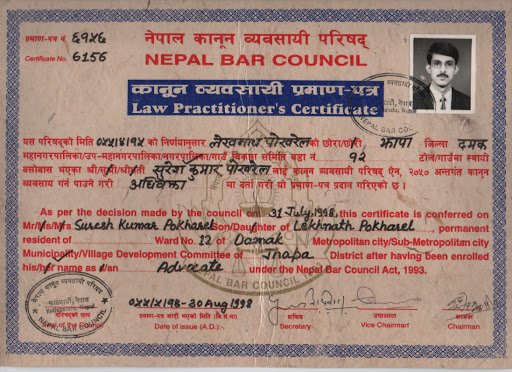 प्रमाण-पत्र नं. ६१५६
Certificate No. 6156
नेपाल कानून व्यवसायी परिषद्
NEPAL BAR COUNCIL
कानून व्यवसायी प्रमाण-पत्र
Law Practitioner's Certificate
यस परिषद्को मिति ०५५।४।१५ को निर्णयानुसार लेखनाथ पोखरेल को छोरा/छोरी झापा जिल्ला दमक
महानगरपालिका/उप-महानगरपालिका/नगरपालिका/गाउँ विकास समिति वडा नं. १२ टोल/गाउँमा स्थायी
बसोबास भएका श्री सुरेश कुमार पोखरेल लाई कानून व्यवसायी परिषद् ऐन, २०५० अन्तर्गत कानून
व्यवसाय गर्न पाउने गरी अधिवक्ता मा दर्ता गरी यो प्रमाण-पत्र प्रदान गरिएको छ।
As per the decision made by the council on 31 July, 1998, this certificate is conferred on
Mr/Ms/Mrs Suresh Kumar Pokharel Son/Daughter of Lekhnath Pokharel, permanent
resident of Ward No. 12 of Damak Metropolitan city/Sub-Metropolitan city
Municipality/Village Development Committee of Jhapa District after having been enrolled
his/her name as a/an Advocate under the Nepal Bar Council Act, 1993.
NEPAL BAR COUNCIL
नेपाल कानून व्यवसायी परिषद्
काठमाडौं, नेपाल
Kathmandu, Nepal
NEPAL BAR COUNCIL
परिषद्को छाप
Seal of the Council
30 Aug 1998
प्रमाण-पत्र जारी भएको मिति (वि.सं.)
Date of issue (A.D.)
सचिव
Secretary
उपाध्यक्ष
Vice Chairman
अध्यक्ष
Chairman